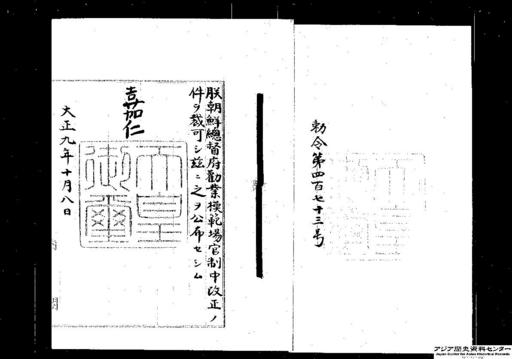 勅令第四百七十三号
朕朝鮮總督府勸業模範場官制中改正ノ
件ヲ裁可シ茲ニ之ヲ公布セシム
嘉仁
天皇
御璽
大正九年十月八日
アジア歴史資料センター
Japan Center for Asian Historical Records